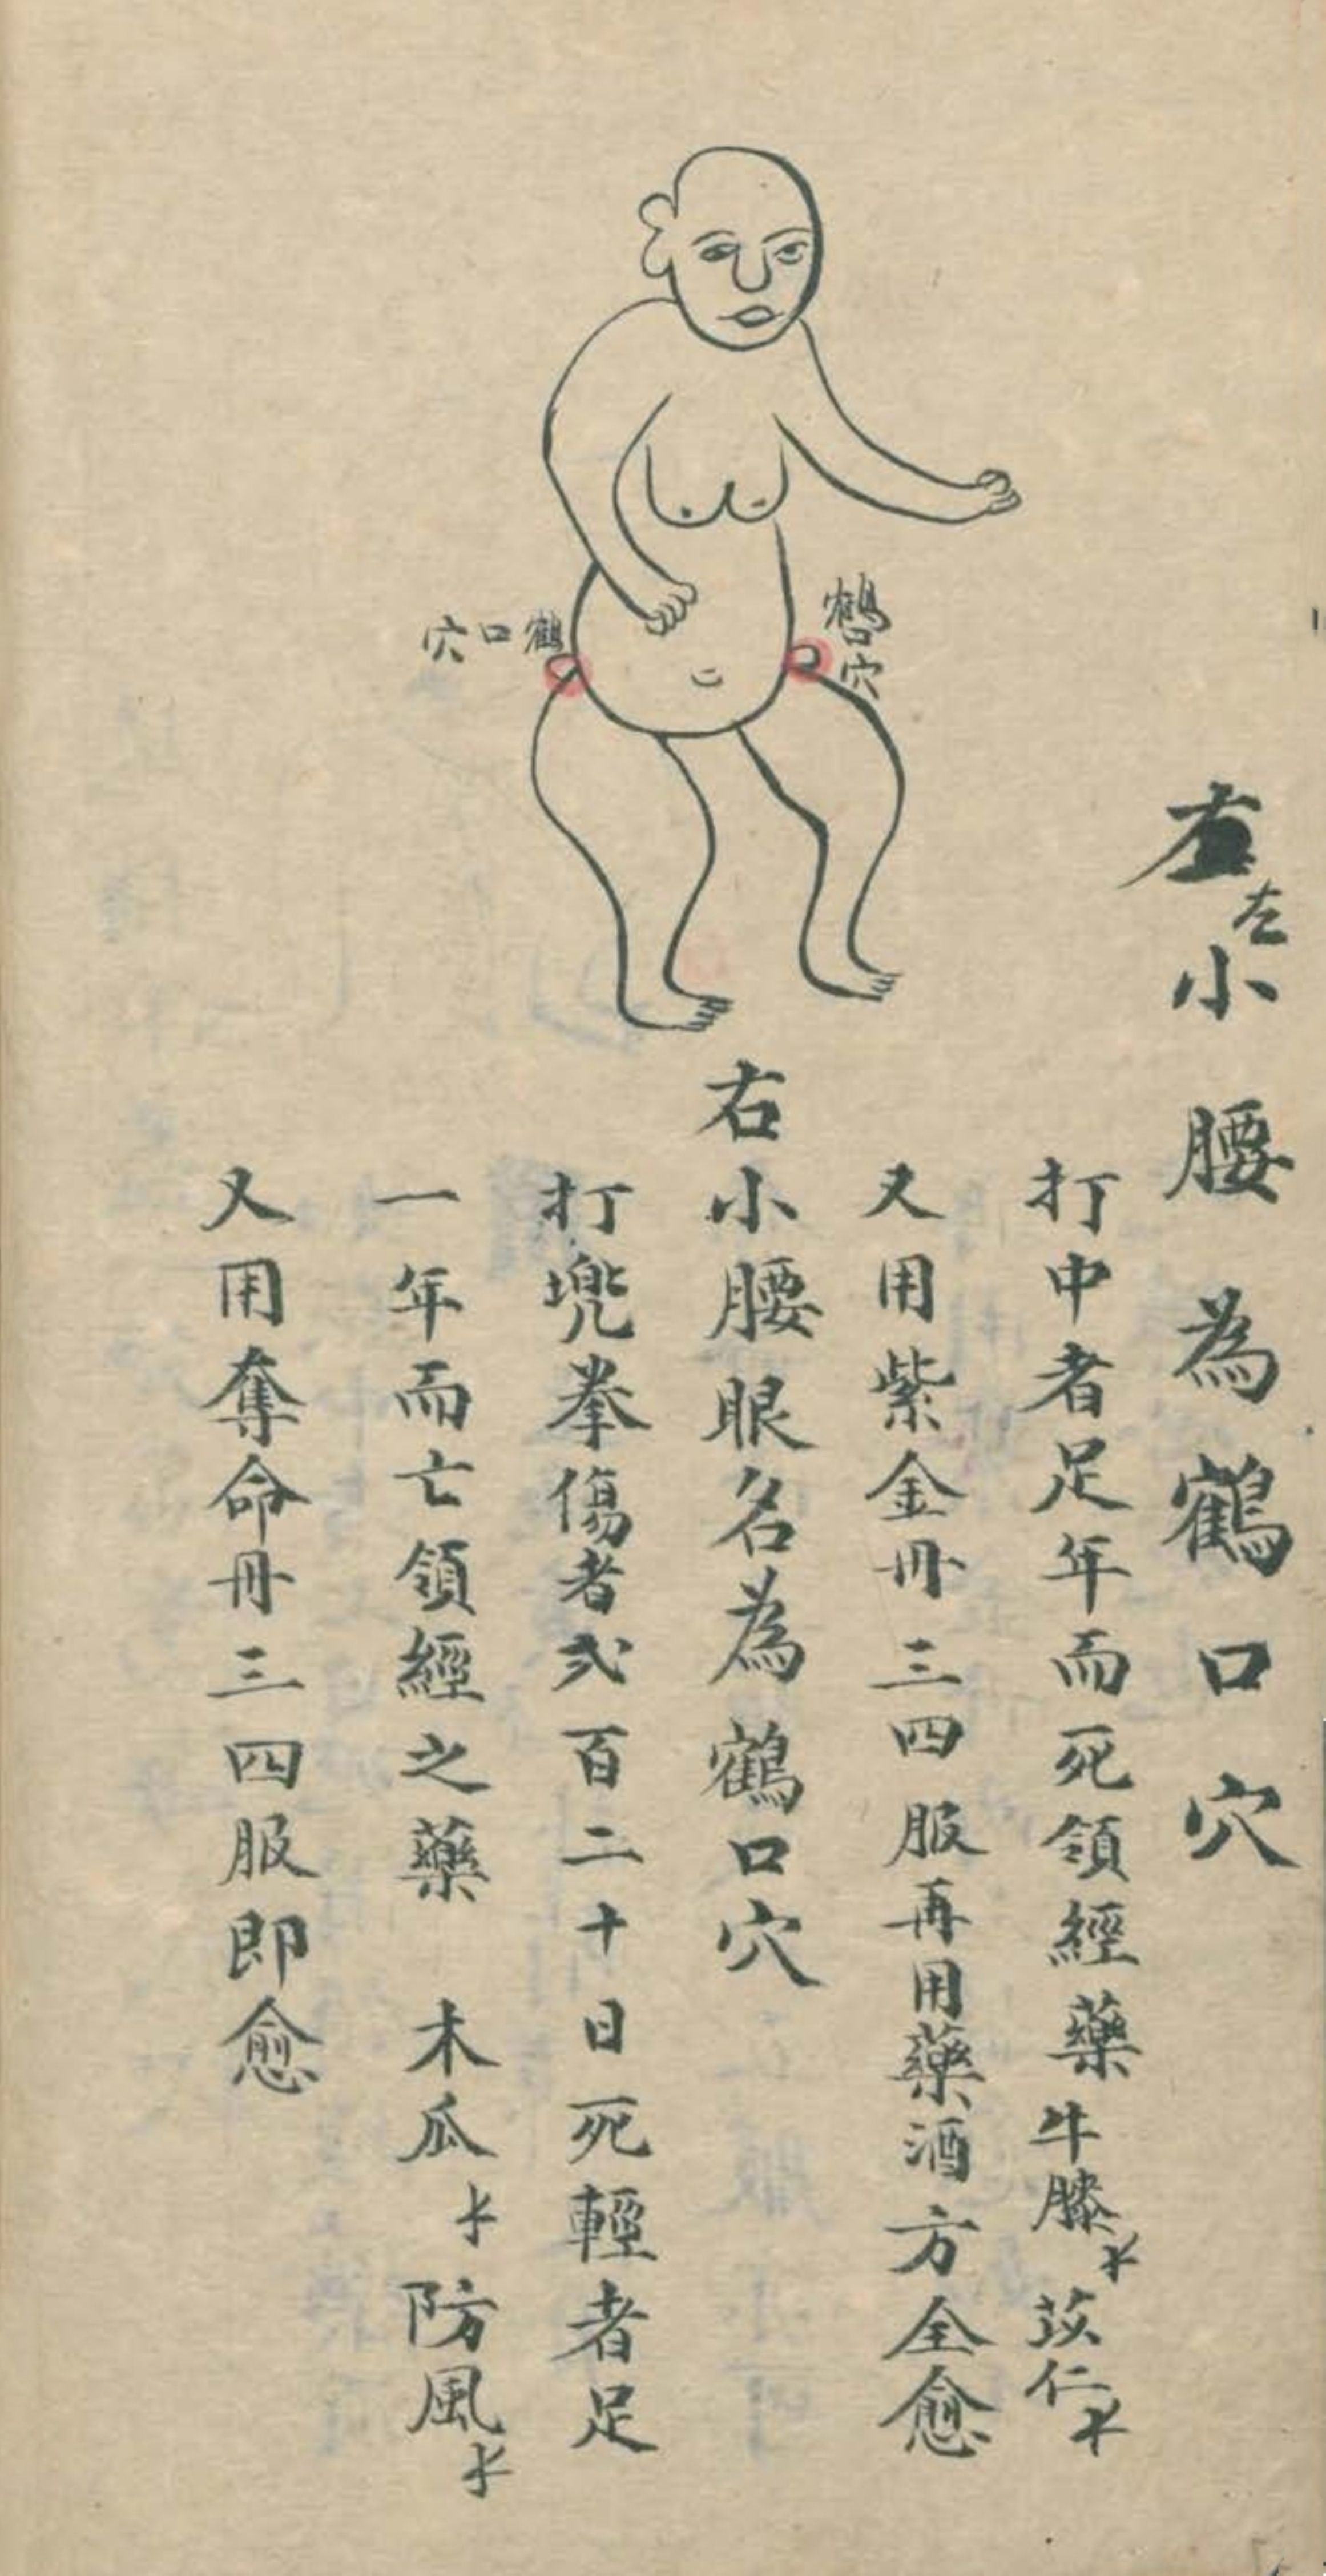 左小腰為鶴口穴
打中者足年而死領經藥牛膝 苡仁
又用紫金丹三四服再用藥酒方全愈
右小腰眼名為鶴口穴
打兠拳傷者弍百二十日死輕者足
一年而亡領經之藥 木瓜 防風
又用奪命丹三四服即愈
鶴口穴
鶴口穴